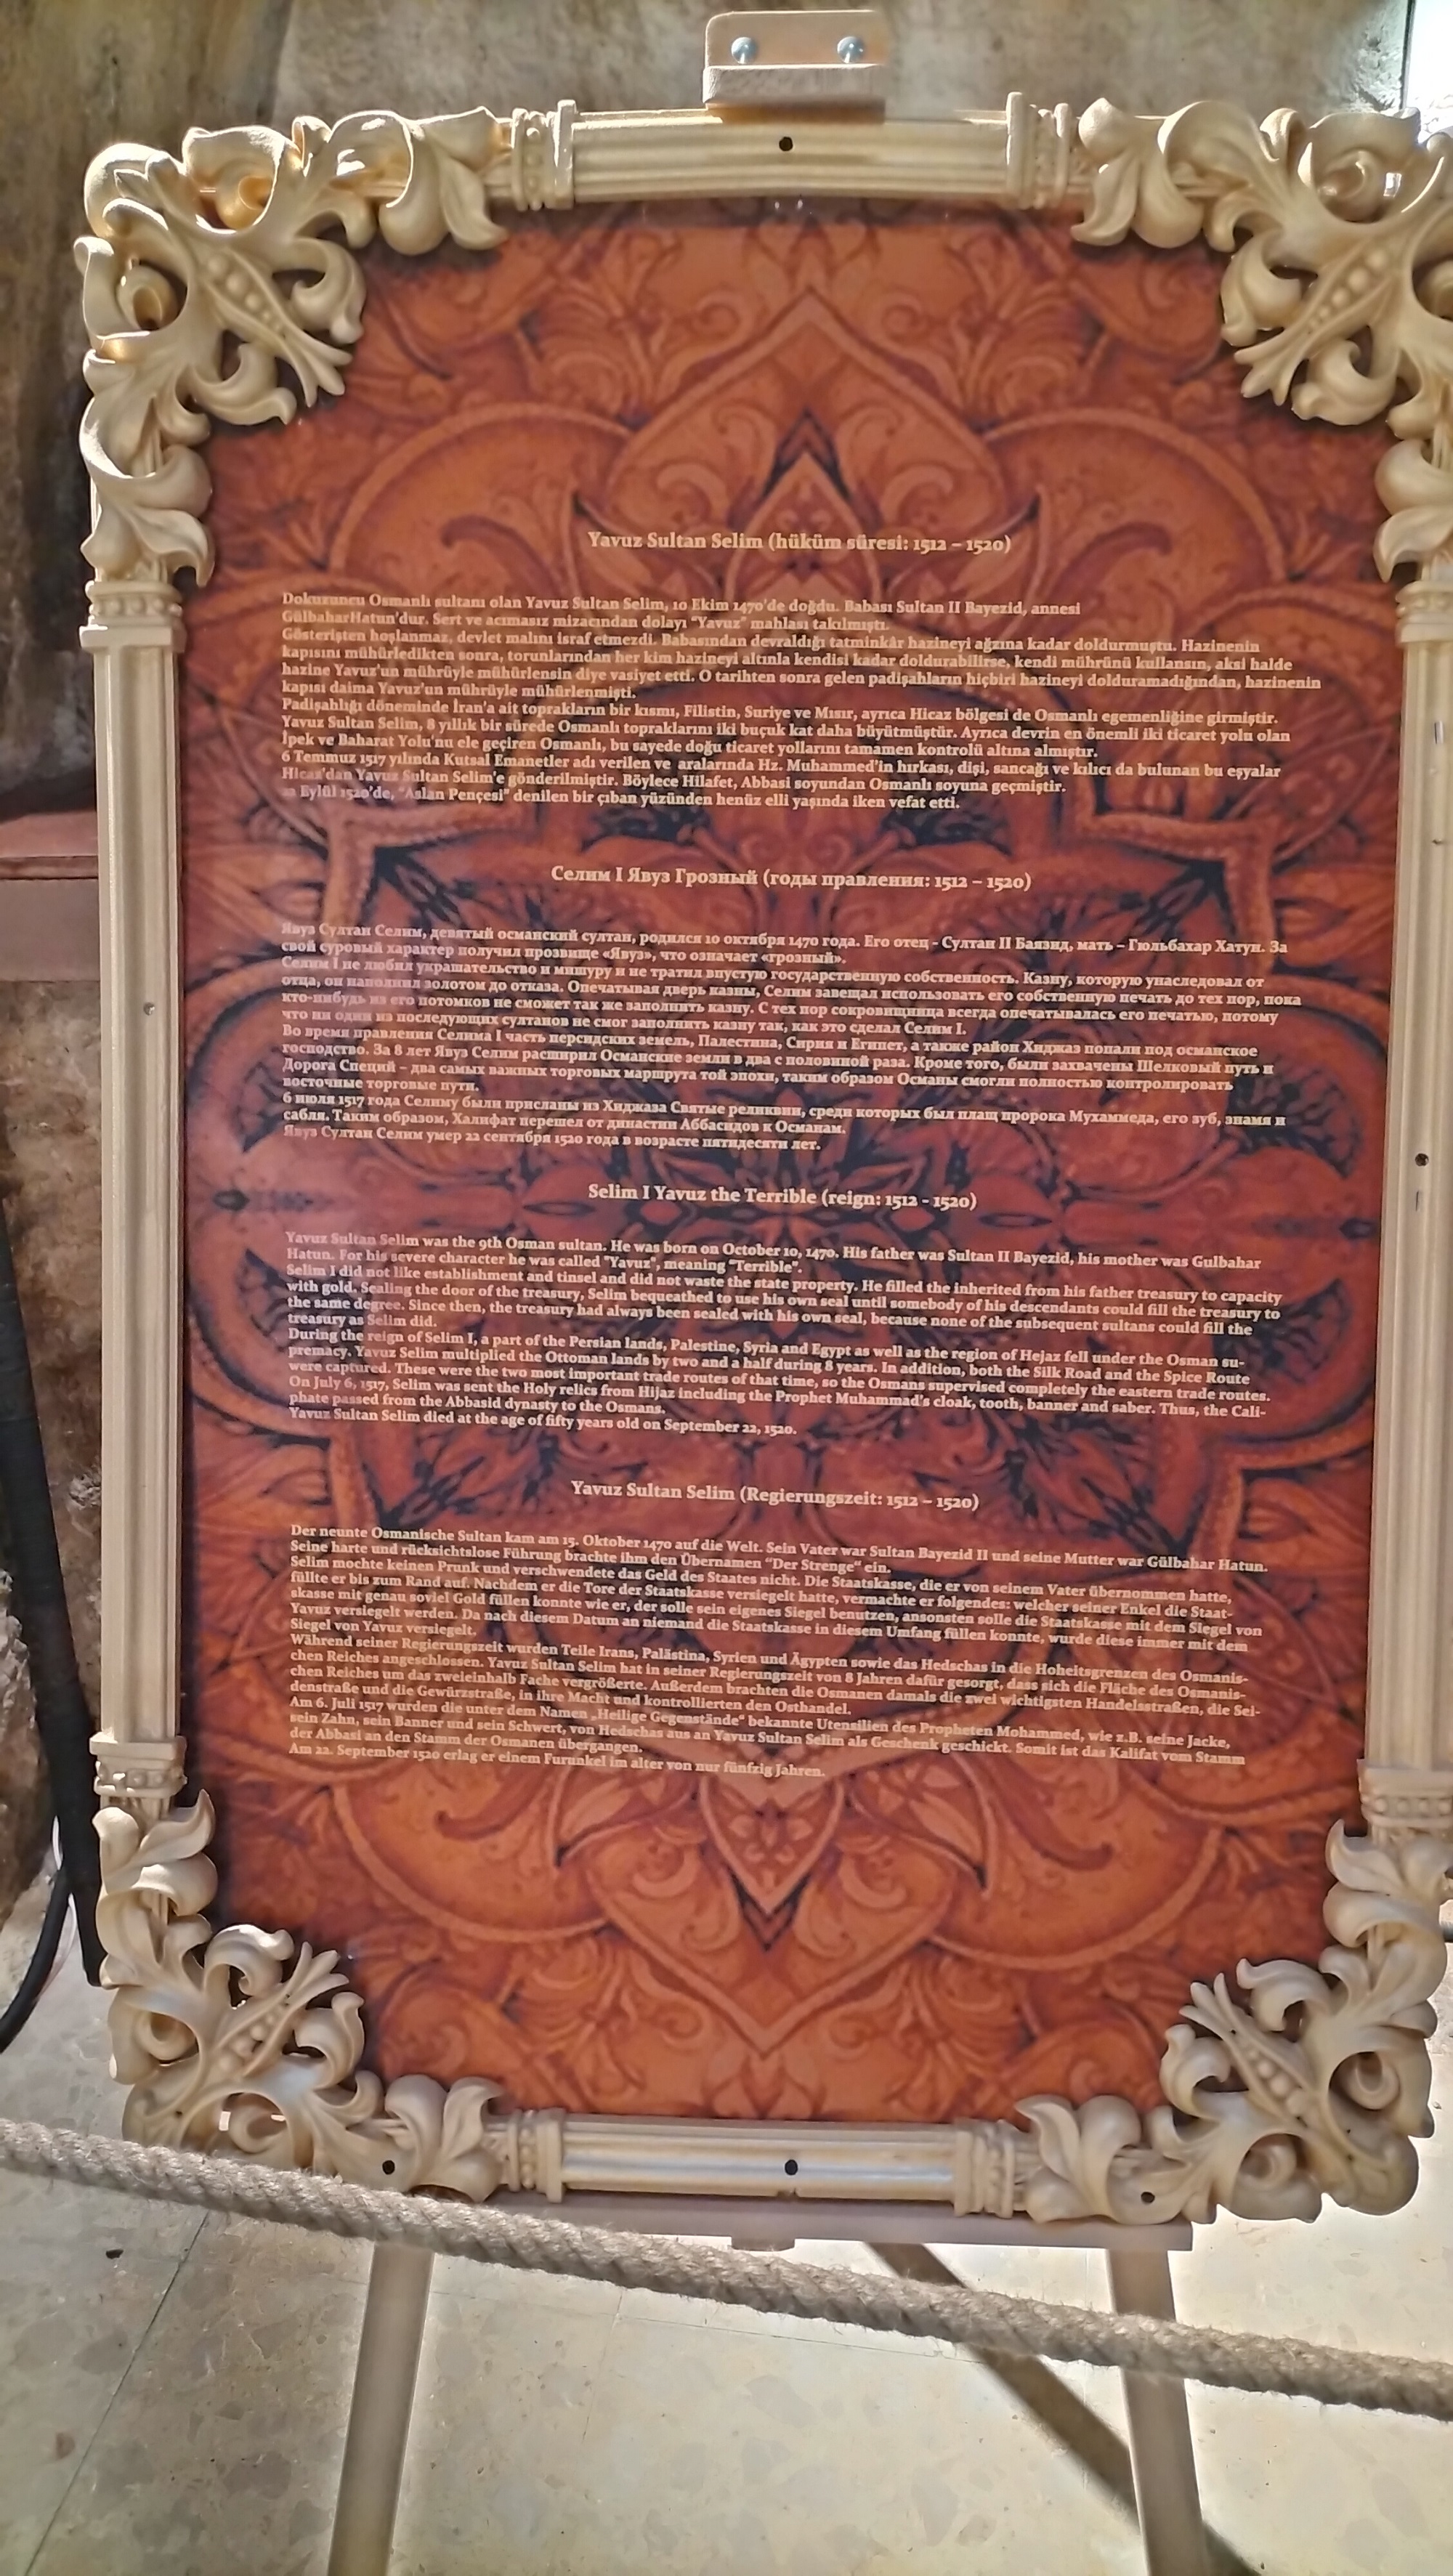 Yavuz Sultan Selim (hüküm süresi: 1512 – 1520)
Dokuzuncu Osmanlı sultanı olan Yavuz Sultan Selim, 10 Ekim 1470'de doğdu. Babası Sultan II Bayezid, annesi
GülbaharHatun'dur. Sert ve acımasız mizacından dolayı "Yavuz" mahlası takılmıştı.
Gösterişten hoşlanmaz, devlet malını israf etmezdi. Babasından devraldığı tatminkâr hazineyi ağzına kadar doldurmuştu. Hazinenin
kapısını mühürledikten sonra, torunlarından her kim hazineyi altınla kendisi kadar doldurabilirse, kendi mührünü kullansın, aksi halde
hazine Yavuz'un mührüyle mühürlensin diye vasiyet etti. O tarihten sonra gelen padişahların hiçbiri hazineyi dolduramadığından, hazinenin
kapısı daima Yavuz'un mührüyle mühürlenmişti.
Padişahlığı döneminde İran'a ait toprakların bir kısmı, Filistin, Suriye ve Mısır, ayrıca Hicaz bölgesi de Osmanlı egemenliğine girmiştir.
Yavuz Sultan Selim, 8 yıllık bir sürede Osmanlı topraklarını iki buçuk kat daha büyütmüştür. Ayrıca devrin en önemli iki ticaret yolu olan
İpek ve Baharat Yolu'nu ele geçiren Osmanlı, bu sayede doğu ticaret yollarını tamamen kontrolü altına almıştır.
6 Temmuz 1517 yılında Kutsal Emanetler adı verilen ve aralarında Hz. Muhammed'in hırkası, dişi, sancağı ve kılıcı da bulunan bu eşyalar
Hicaz'dan Yavuz Sultan Selim'e gönderilmiştir. Böylece Hilafet, Abbasi soyundan Osmanlı soyuna geçmiştir.
22 Eylül 1520'de, "Aslan Pençesi" denilen bir çıban yüzünden henüz elli yaşında iken vefat etti.
Селим I Явуз Грозный (годы правления: 1512 – 1520)
Явуз Султан Селим, девятый османский султан, родился 10 октября 1470 года. Его отец - Султан II Баязид, мать – Гюльбахар Хатун. За
свой суровый характер получил прозвище «Явуз», что означает «грозный».
Селим I не любил украшательство и мишуру и не тратил впустую государственную собственность. Казну, которую унаследовал от
отца, он наполнил золотом до отказа. Опечатывая дверь казны, Селим завещал использовать его собственную печать до тех пор, пока
кто-нибудь из его потомков не сможет так же заполнить казну. С тех пор сокровищница всегда опечатывалась его печатью, потому
что ни один из последующих султанов не смог заполнить казну так, как это сделал Селим I.
Во время правления Селима I часть персидских земель, Палестина, Сирия и Египет, а также район Хиджаз попали под османское
господство. За 8 лет Явуз Селим расширил Османские земли в два с половиной раза. Кроме того, были захвачены Шелковый путь и
Дорога Специй – два самых важных торговых маршрута той эпохи, таким образом Османы смогли полностью контролировать
восточные торговые пути.
6 июля 1517 года Селиму были присланы из Хиджаза Святые реликвии, среди которых был плащ пророка Мухаммеда, его зуб, знамя и
сабля. Таким образом, Халифат перешел от династии Аббасидов к Османам.
Явуз Султан Селим умер 22 сентября 1520 года в возрасте пятидесяти лет.
Selim I Yavuz the Terrible (reign: 1512 - 1520)
Yavuz Sultan Selim was the 9th Osman sultan. He was born on October 10, 1470. His father was Sultan II Bayezid, his mother was Gulbahar
Hatun. For his severe character he was called "Yavuz", meaning "Terrible".
Selim I did not like establishment and tinsel and did not waste the state property. He filled the inherited from his father treasury to capacity
with gold. Sealing the door of the treasury, Selim bequeathed to use his own seal until somebody of his descendants could fill the treasury to
the same degree. Since then, the treasury had always been sealed with his own seal, because none of the subsequent sultans could fill the
treasury as Selim did.
During the reign of Selim I, a part of the Persian lands, Palestine, Syria and Egypt as well as the region of Hejaz fell under the Osman su-
premacy. Yavuz Selim multiplied the Ottoman lands by two and a half during 8 years. In addition, both the Silk Road and the Spice Route
were captured. These were the two most important trade routes of that time, so the Osmans supervised completely the eastern trade routes.
On July 6, 1517, Selim was sent the Holy relics from Hijaz including the Prophet Muhammad's cloak, tooth, banner and saber. Thus, the Cali-
phate passed from the Abbasid dynasty to the Osmans.
Yavuz Sultan Selim died at the age of fifty years old on September 22, 1520.
Yavuz Sultan Selim (Regierungszeit: 1512 – 1520)
Der neunte Osmanische Sultan kam am 15. Oktober 1470 auf die Welt. Sein Vater war Sultan Bayezid II und seine Mutter war Gülbahar Hatun.
Seine harte und rücksichtslose Führung brachte ihm den Übernamen "Der Strenge" ein.
Selim mochte keinen Prunk und verschwendete das Geld des Staates nicht. Die Staatskasse, die er von seinem Vater übernommen hatte,
füllte er bis zum Rand auf. Nachdem er die Tore der Staatskasse versiegelt hatte, vermachte er folgendes: welcher seiner Enkel die Staat-
skasse mit genau soviel Gold füllen konnte wie er, der solle sein eigenes Siegel benutzen, ansonsten solle die Staatskasse mit dem Siegel von
Yavuz versiegelt werden. Da nach diesem Datum an niemand die Staatskasse in diesem Umfang füllen konnte, wurde diese immer mit dem
Siegel von Yavuz versiegelt.
Während seiner Regierungszeit wurden Teile Irans, Palästina, Syrien und Ägypten sowie das Hedschas in die Hoheitsgrenzen des Osmanis-
chen Reiches angeschlossen. Yavuz Sultan Selim hat in seiner Regierungszeit von 8 Jahren dafür gesorgt, dass sich die Fläche des Osmanis-
chen Reiches um das zweieinhalb Fache vergrößerte. Außerdem brachten die Osmanen damals die zwei wichtigsten Handelsstraßen, die Sei-
denstraße und die Gewürzstraße, in ihre Macht und kontrollierten den Osthandel.
Am 6. Juli 1517 wurden die unter dem Namen „Heilige Gegenstände" bekannte Utensilien des Propheten Mohammed, wie z.B. seine Jacke,
sein Zahn, sein Banner und sein Schwert, von Hedschas aus an Yavuz Sultan Selim als Geschenk geschickt. Somit ist das Kalifat vom Stamm
der Abbasi an den Stamm der Osmanen übergangen.
Am 22. September 1520 erlag er einem Furunkel im alter von nur fünfzig Jahren.